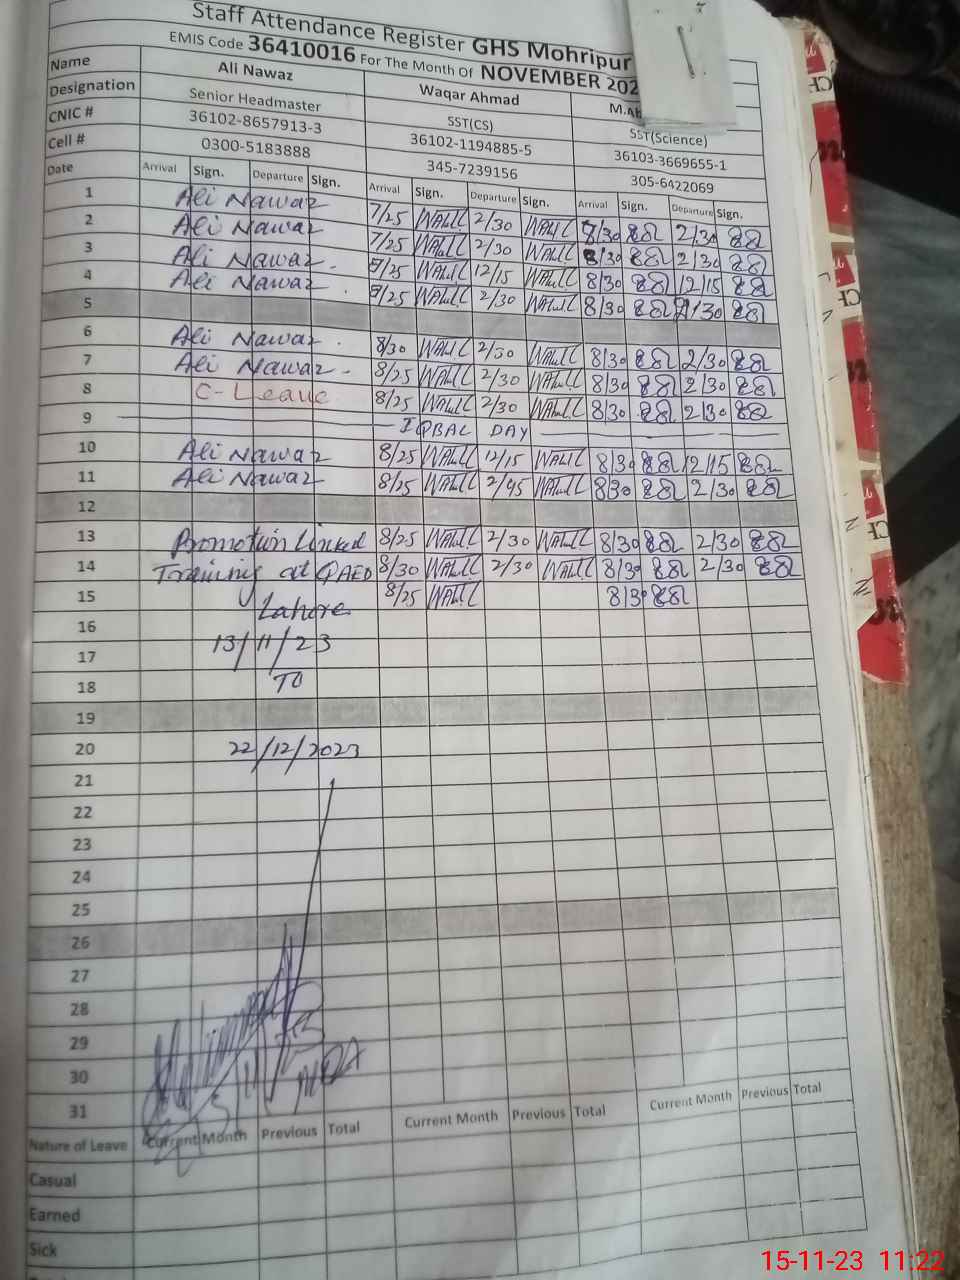 Staff Attendance Register GHS Mohripur
EMIS Code 36410016 For The Month Of NOVEMBER 202
Name Ali Nawaz Waqar Ahmad M.Ab
Designation Senior Headmaster SST(CS) SST(Science)
CNIC # 36102-8657913-3 36102-1194885-5 36103-3669655-1
Cell # 0300-5183888 345-7239156 305-6422069
Date Arrival Sign. Departure Sign. Arrival Sign. Departure Sign. Arrival Sign. Departure Sign.
1 Ali Nawaz 7/25 2/30 8/30 2/30
2 Ali Nawaz 7/25 2/30 8/30 2/30
3 Ali Nawaz 12/15 8/30 12/15
4 Ali Nawaz 2/30 8/30 2/30
5
6 Ali Nawaz 8/30 2/30 8/30 2/30
7 Ali Nawaz 8/25 2/30 8/30 2/30
8 C-Leave 8/25 2/30 8/30 2/30
9 IQBAL DAY
10 Ali Nawaz 8/25 12/15 8/30 12/15
11 Ali Nawaz 8/25 2/45 8/30 2/30
12
13 Promotion Linked 8/25 2/30 8/30 2/30
14 Training at QAED 8/30 2/30 8/30 2/30
15 Lahore 8/25 8/30
16 13/11/23
17
18 TO
19
20 22/12/2023
21
22
23
24
25
26
27
28
29
30
31
Nature of Leave Current Month Previous Total Current Month Previous Total Current Month Previous Total
Casual
Earned
Sick
15-11-23 11:22